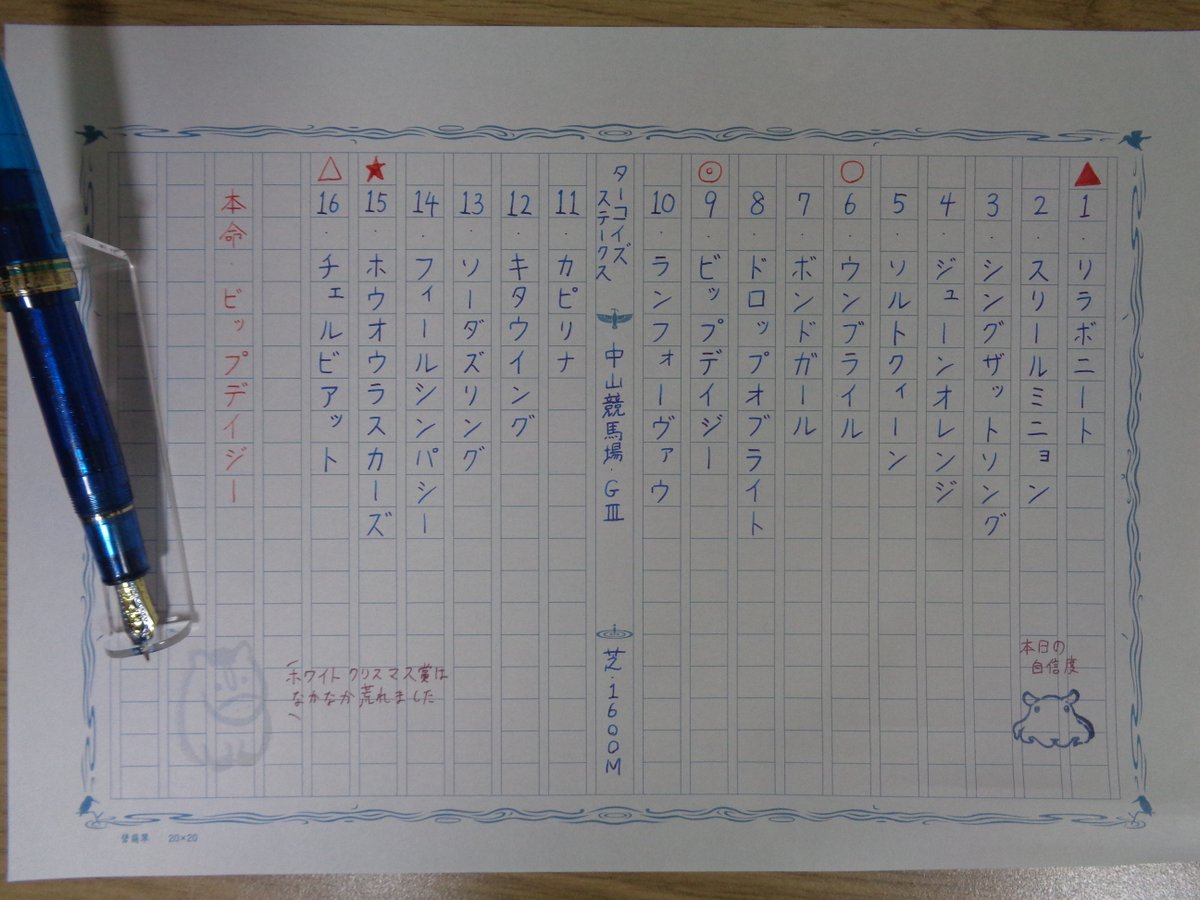 ▲1.リラボニート
2.スリールミニョン
3.シングザットソング
4.ジューンオレンジ
5.ソルトクィーン
○6.ウンブライル
7.ボンドガール
8.ドロップオブライト
◎9.ビップデイジー
10.ランフォーヴァウ
ターコイズ
ステークス
中山競馬場・GⅢ
芝・1600M
11.カピリナ
12.キタウイング
13.ソーダズリング
14.フィールシンパシー
★15.ホウオウラスカーズ
△16.チェルビアット
本命.ビップデイジー
本日の
自信度
ホワイトクリスマス賞は
なかなか荒れました
20×20